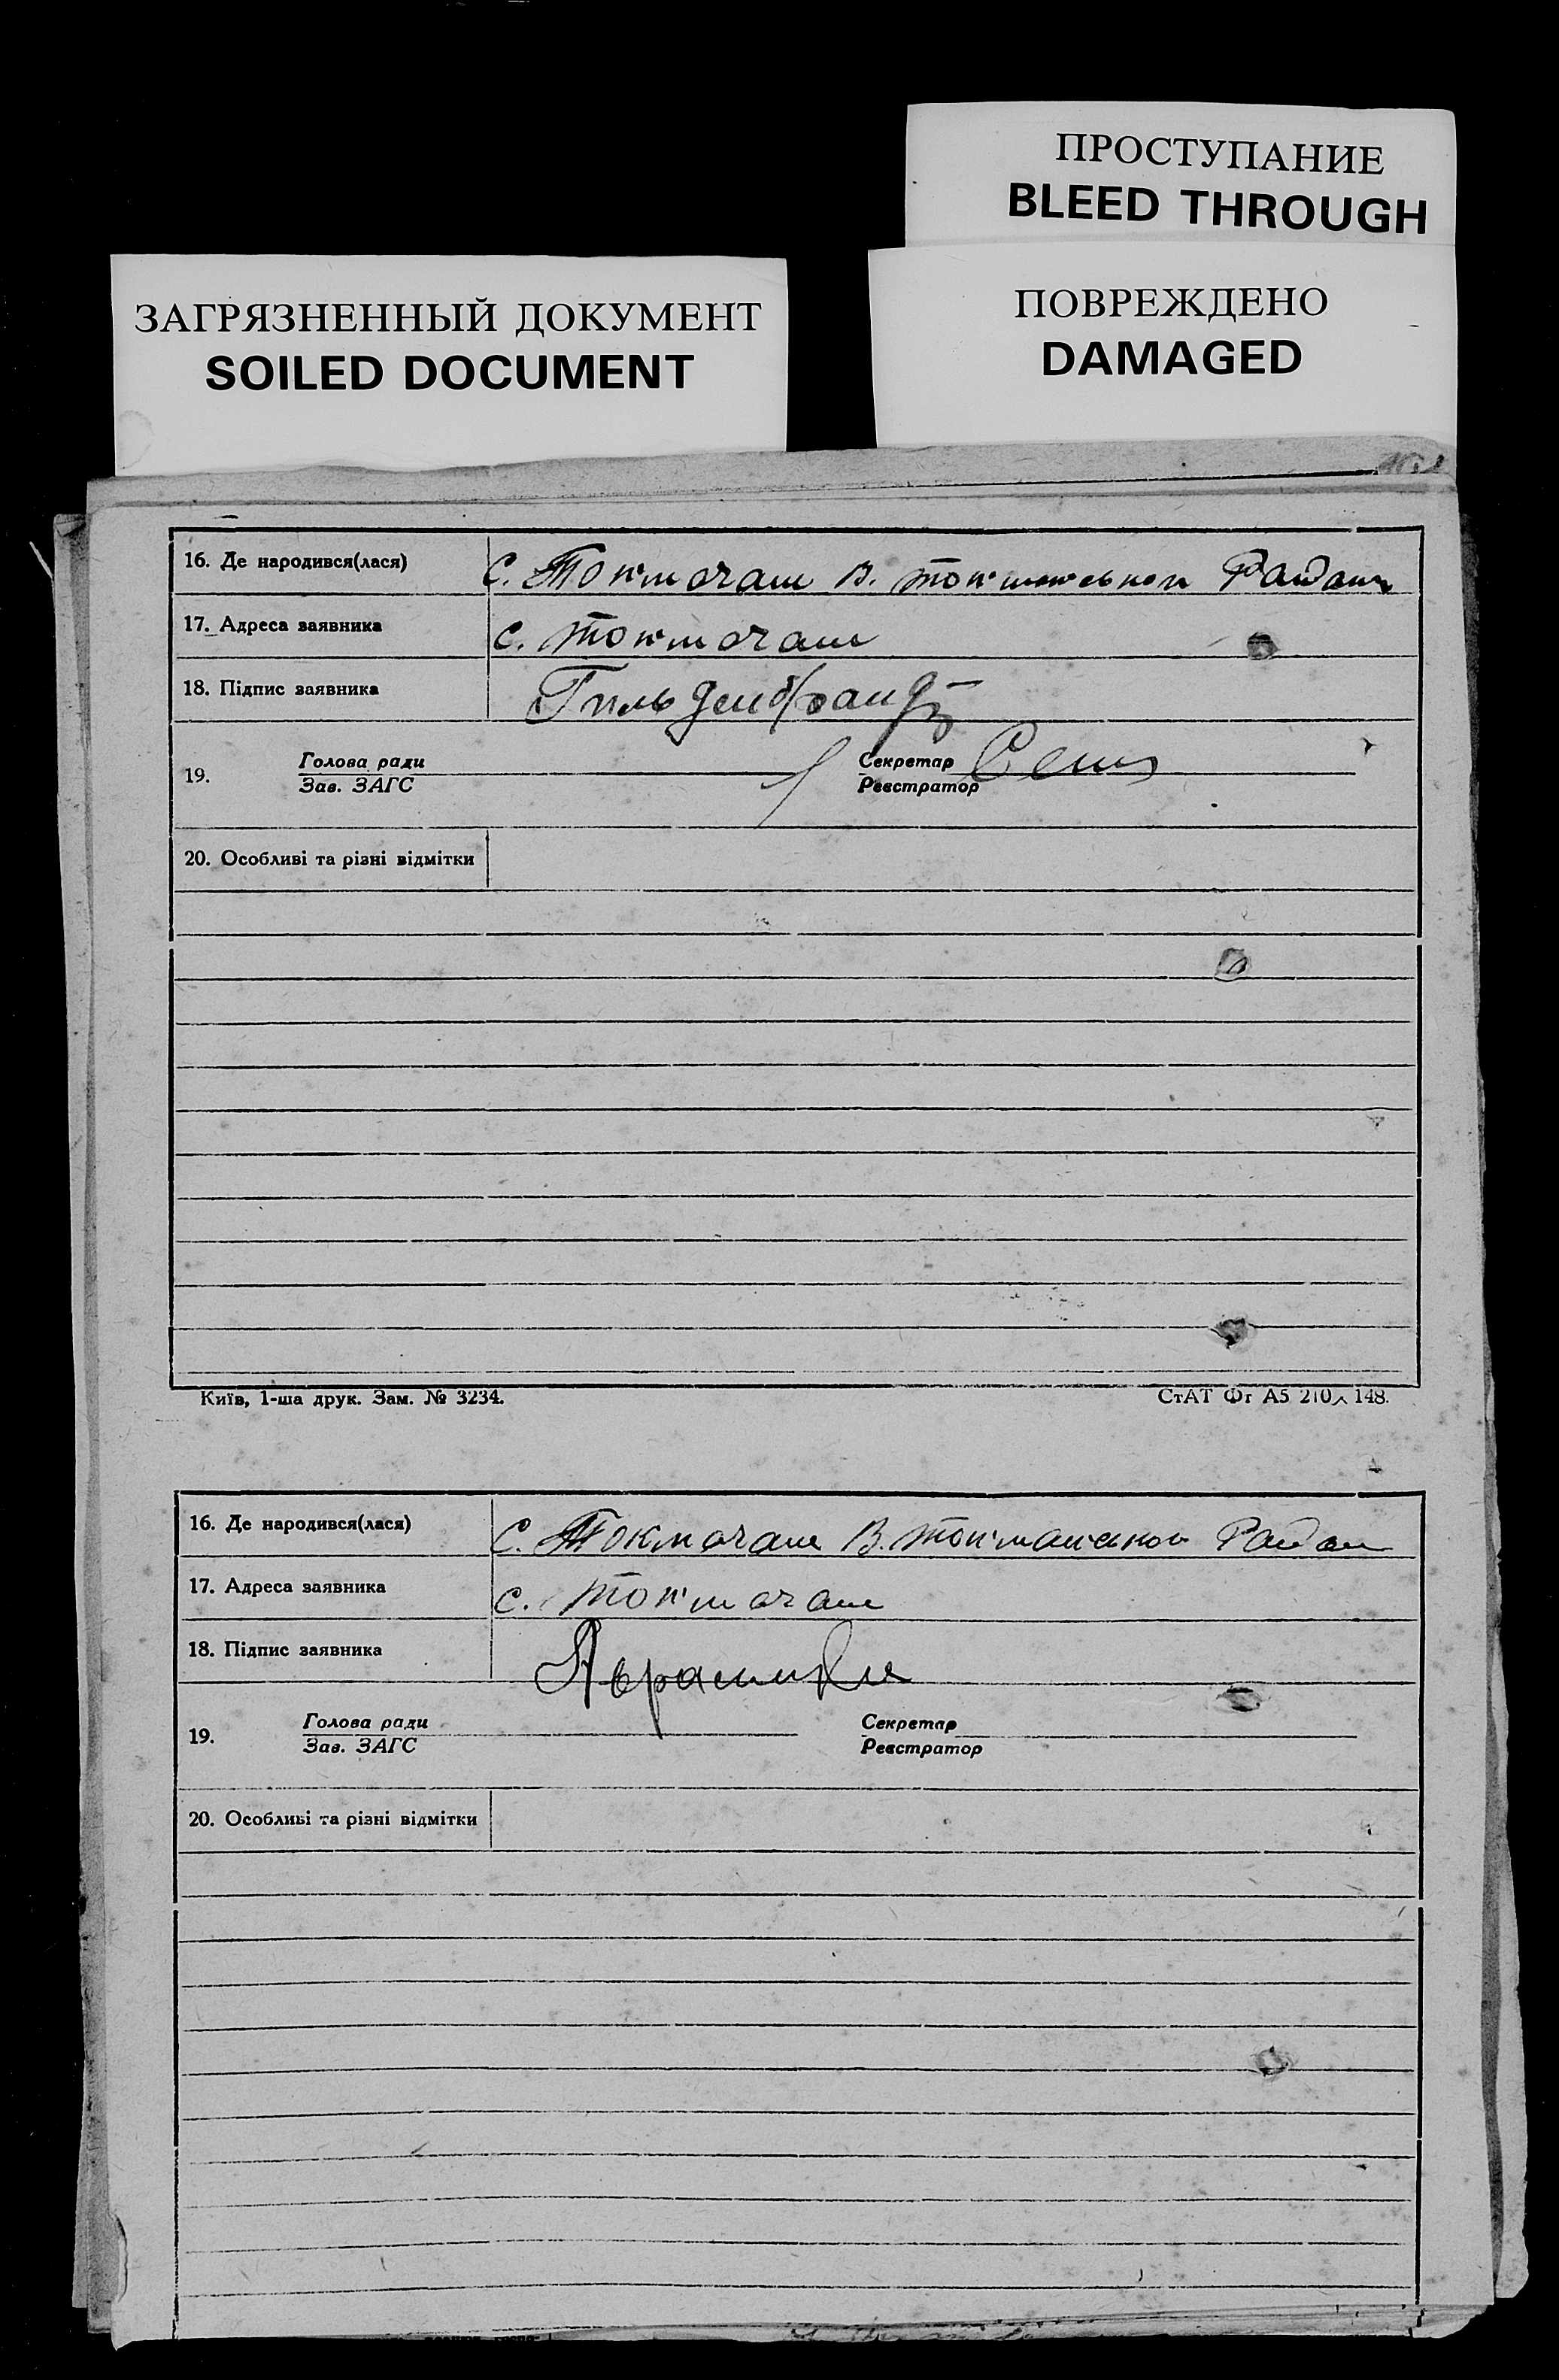 ПРОСТУПАНИЕ
BLEED THROUGH
ЗАГРЯЗНЕННЫЙ ДОКУМЕНТ
SOILED DOCUMENT
ПОВРЕЖДЕНО
DAMAGED
16. Де народився(лася) С. Токмачаш В.
17. Адреса заявника с. Токмачаш
18. Підпис заявника Гильденбрандт
19. Голова ради Секретар
Зав. ЗАГС Реєстратор
20. Особливі та різні відмітки
Київ, 1-ша друк. Зам. № 3234. СтАТ Фг А5 210 148.
16. Де народився(лася) С. Токмачаш В.
17. Адреса заявника с. Токмачаш
18. Підпис заявника
19. Голова ради Секретар
Зав. ЗАГС Реєстратор
20. Особливі та різні відмітки